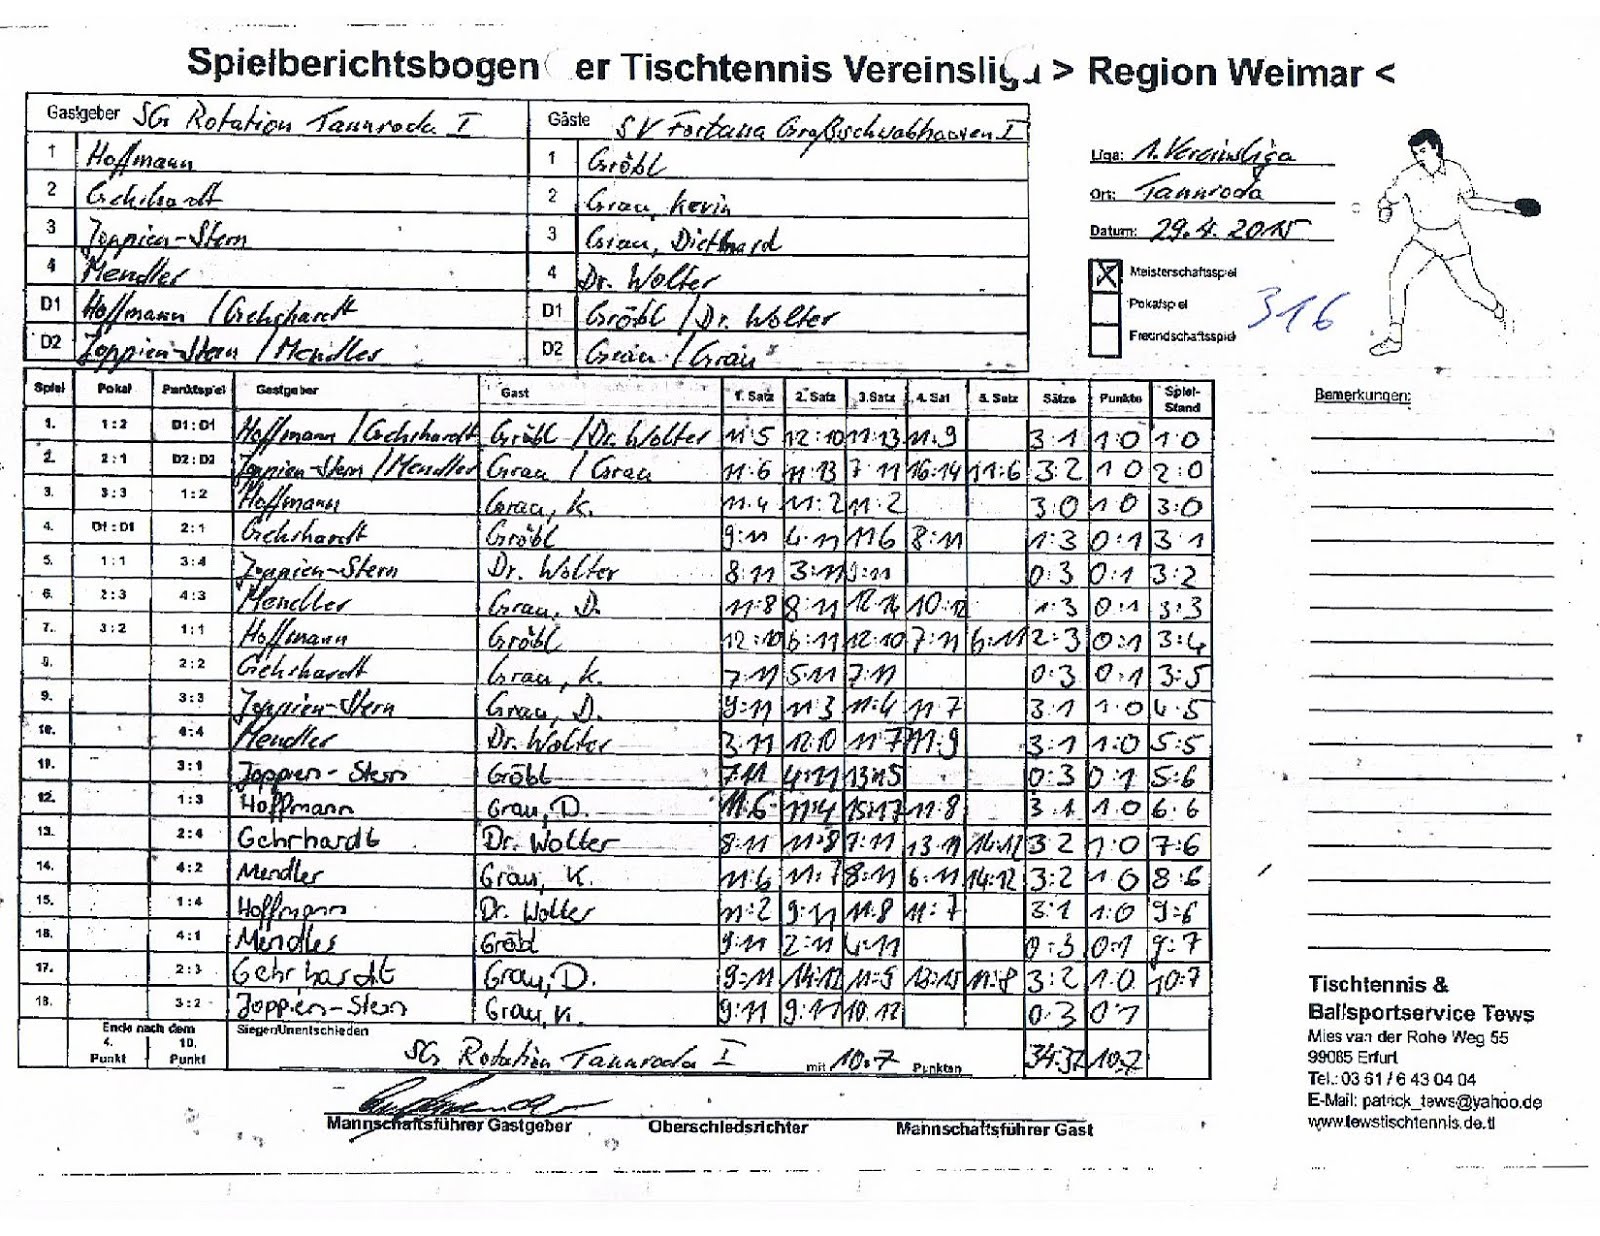 Spielberichtsbogen er Tischtennis Vereinsliga > Region Weimar <
Gastgeber SG Rotation Tannroda I Gäste SV Fortuna Großschwabhausen I
1 Hoffmann 1 Gröbl
2 Gehrhardt 2 Grau, Kevin
3 Joppien-Stern 3 Grau, Diethard
4 Mendler 4 Dr. Wolter
D1 Hoffmann / Gehrhardt D1 Gröbl / Dr. Wolter
D2 Joppien-Stern / Mendler D2 Grau / Grau
Liga: 1. Vereinsliga
Ort: Tannroda
Datum: 29.4.2015
X Meisterschaftsspiel
Pokalspiel
Freundschaftsspiel
316
Spiel Pokal Punktspiel Gastgeber Gast 1. Satz 2. Satz 3. Satz 4. Sat 5. Satz Sätze Punkte Spiel-Stand
1. 1:2 D1:D1 Hoffmann / Gehrhardt Gröbl / Dr. Wolter 11:5 12:10 11:13 11:9 3:1 1:0 1:0
2. 2:1 D2:D2 Joppien-Stern / Mendler Grau / Grau 11:6 11:13 7:11 16:14 11:6 3:2 1:0 2:0
3. 3:3 1:2 Hoffmann Grau, K. 11:4 11:2 11:2 3:0 1:0 3:0
4. D1:D1 2:1 Gehrhardt Gröbl 9:11 4:11 11:6 8:11 1:3 0:1 3:1
5. 1:1 3:4 Joppien-Stern Dr. Wolter 8:11 3:11 9:11 0:3 0:1 3:2
6. 2:3 4:3 Mendler Grau, D. 11:8 8:11 12:14 10:12 1:3 0:1 3:3
7. 3:2 1:1 Hoffmann Gröbl 12:10 6:11 12:10 7:11 6:11 2:3 0:1 3:4
8. 2:2 Gehrhardt Grau, K. 7:11 5:11 7:11 0:3 0:1 3:5
9. 3:3 Joppien-Stern Grau, D. 9:11 11:3 11:4 11:7 3:1 1:0 4:5
10. 4:4 Mendler Dr. Wolter 3:11 12:10 11:7 11:9 3:1 1:0 5:5
11. 3:1 Joppien-Stern Gröbl 7:11 4:11 13:15 0:3 0:1 5:6
12. 1:3 Hoffmann Grau, D. 11:6 11:4 15:17 11:8 3:1 1:0 6:6
13. 2:4 Gehrhardt Dr. Wolter 8:11 11:8 7:11 13:11 14:12 3:2 1:0 7:6
14. 4:2 Mendler Grau, K. 11:6 11:7 8:11 6:11 14:12 3:2 1:0 8:6
15. 1:4 Hoffmann Dr. Wolter 11:2 9:11 11:8 11:7 3:1 1:0 9:6
16. 4:1 Mendler Gröbl 9:11 2:11 4:11 0:3 0:1 9:7
17. 2:3 Gehrhardt Grau, D. 9:11 14:12 11:9 13:15 11:8 3:2 1:0 10:7
18. 3:2 Joppien-Stern Grau, K. 9:11 9:11 10:12 0:3 0:1
Ende nach dem
4. Punkt 10. Punkt
Sieger/Unentschieden
SG Rotation Tannroda I mit 10:7 Punkten 34:32 10:7
Mannschaftsführer Gastgeber Oberschiedsrichter Mannschaftsführer Gast
Bemerkungen:
Tischtennis &
Ballsportservice Tews
Mies van der Rohe Weg 55
99085 Erfurt
Tel.: 03 61 / 6 43 04 04
E-Mail: patrick_tews@yahoo.de
www.tewstischtennis.de.tl